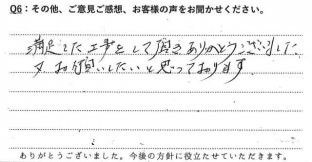 Q6：その他、ご意見ご感想、お客様の声をお聞かせください。
満足した工事をして頂きありがとうございました
又お願いしたいと思っております
ありがとうございました。今後の方針に役立たせていただきます。